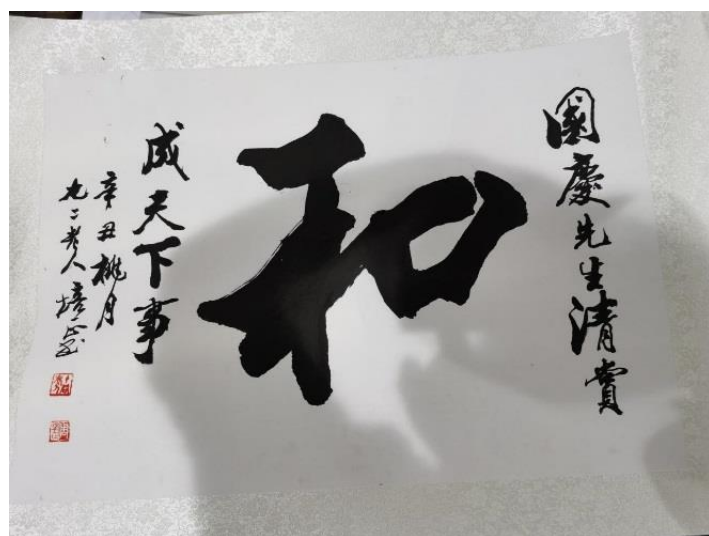 國慶先生清賞
和
成天下事
辛丑桃月
九二老人培